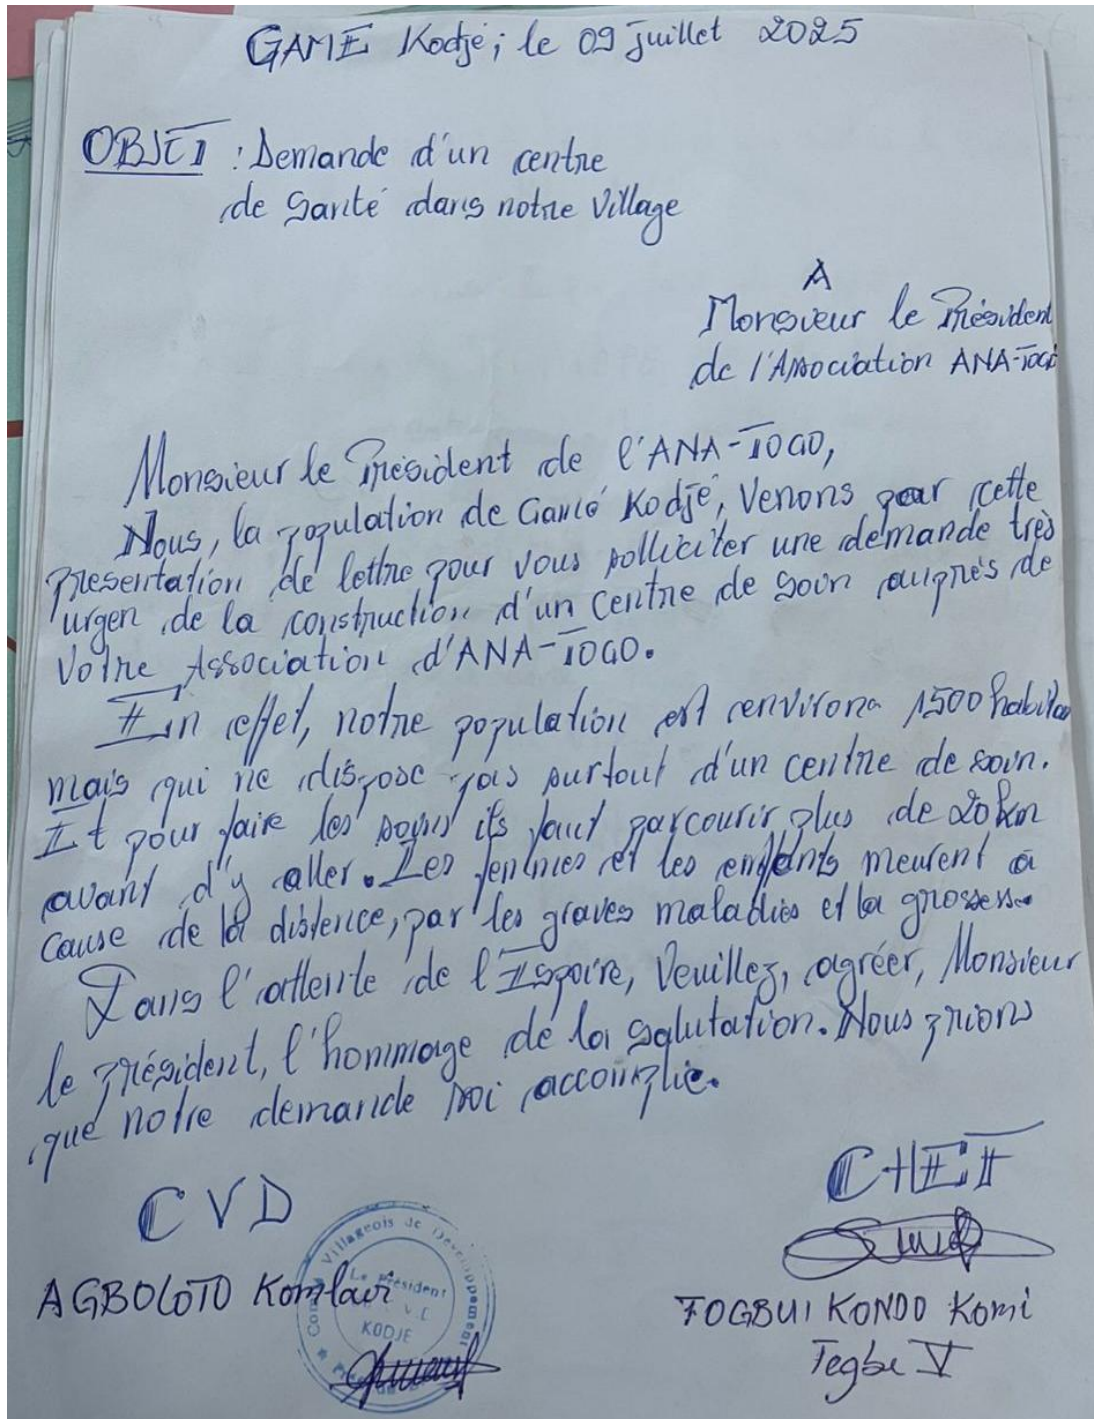 GAME Kodjé, le 09 juillet 2025
OBJET : Demande d'un centre
de Santé dans notre Village
A
Monsieur le Président
de l'Association ANA-TOGO
Monsieur le Président de l'ANA-TOGO,
Nous, la population de Gamé Kodjé, Venons par cette
présentation de lettre pour vous solliciter une demande très
urgen de la construction d'un centre de soin auprès de
Votre Association d'ANA-TOGO.
En effet, notre population est environ 1500 habitan
mais qui ne dispose pas surtout d'un centre de soin.
Et pour faire les soins ils faut parcourir plus de 20 km
avant d'y aller. Les femmes et les enfants meurent à
cause de la distence, par les graves maladies et la grossess
Dans l'attente de l'Espoire, Veuillez, agréer, Monsieur
le président, l'hommage de la salutation. Nous prions
que notre demande soi accomplie.
CVD
CHEF
Villageois de Développement
Le Président
C.V.D
KODJE
AGBOLOTO Komlavi
TOGBUI KONDO Komi
Tegbe V